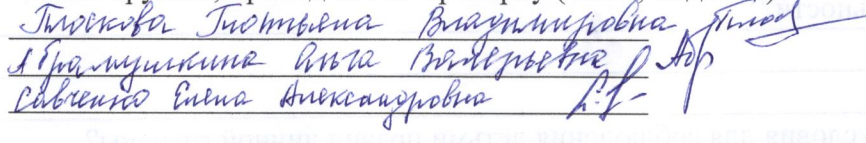 Плоскова Татьяна Владимировна
Абрамушкина Ольга Валерьевна
Савченко Елена Александровна